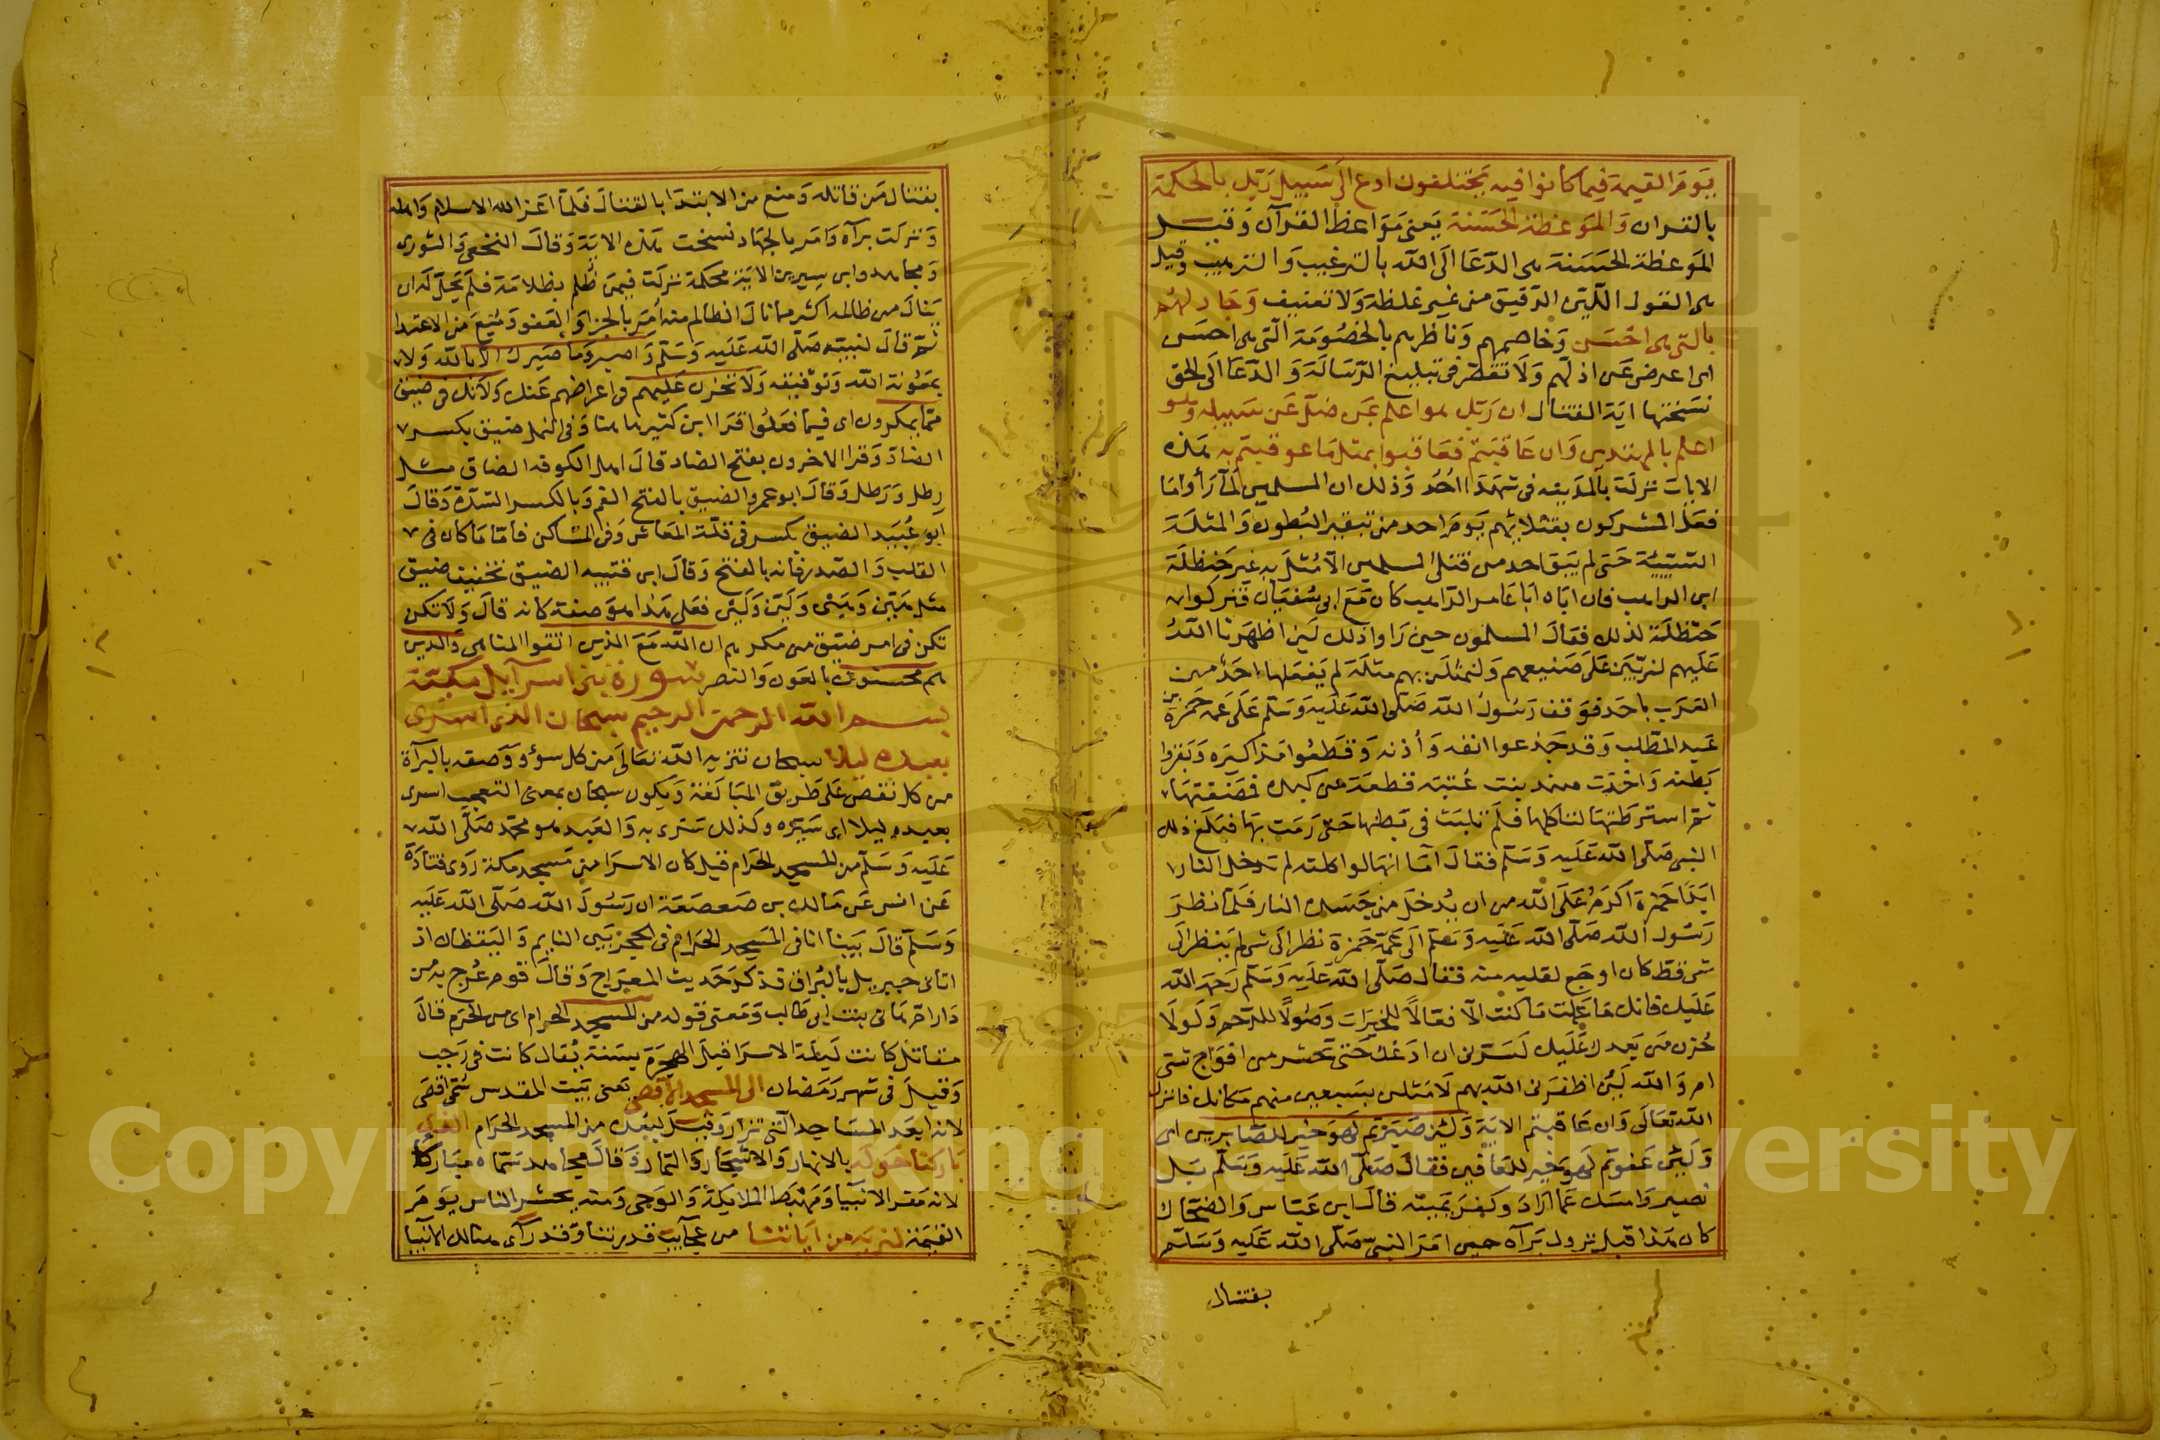 يوم القيمة فيما كانوا فيه يختلفون ادع الى سبيل ربك بالحكمة
بالقران والموعظة الحسنة يعنى مواعظ القرآن وقيل
الموعظة الحسنة هى الدعا الى الله بالترغيب والترهيب وقيل
هى القول اللين الرقيق من غير غلظة ولا تعنيف وجادلهم
بالتى هى احسن وخاصمهم وناظرهم بالخصومة التى هى احسن
اى اعرض عن اذلهم ولا تقصر فى تبليغ الرسالة والدعا الى الحق
نسختها اية القتال ان ربك هو اعلم بمن ضل عن سبيله وهو
اعلم بالمهتدين وان عاقبتم فعاقبوا بمثل ما عوقبتم به هذه
الايات نزلت بالمدينه فى شهدا احد وذلك ان المسلمين لما رأوا ما
فعل المشركون بقتلاهم يوم احد من تبقير البطون والمثلة
السيئة حتى لم يبق احد من قتلى المسلمين الا مثل به غير حنظلة
ابن الراهب فان اباه ابا عامر الراهب كان مع ابى سفيان فتركوا
حنظلة لذلك فقال المسلمون حين راوا ذلك لين اظهرنا الله
عليهم لنزيين على صنيعهم ولنمثلن بهم مثلة لم يفعلها احد من
العرب باحد فوقف رسول الله صلى الله عليه وسلم على عمه حمزة بن
عبد المطلب وقد جذعوا انفه وأذنه وقطعوا مذاكيره وبقروا
بطنه واخذت هند بنت عتبة قطعة من كبده فمضغتها
ثم استرطتها لتاكلها فلم تلبث فى بطنها حتى رمت بها فبلغ ذلك
النبى صلى الله عليه وسلم فقال اما انها لو اكلته لم تدخل النار
ابدا حمزة اكرم على الله من ان يدخل من جسده النار فلما نظر
رسول الله صلى الله عليه وسلم الى عمه حمزة نظر الى شى لم ينظر الى
شى قط كان اوجع لقلبه منه فقال صلى الله عليه وسلم رحمة الله
عليك فانك ما علمت ما كنت الا فعالا للخيرات وصولا للرحم ولولا
حزن من بعدك عليك لسرنى ان ادعك حتى تحشر من افواج شتى
ام والله لين اظفرنى الله بهم لامثلن بسبعين منهم مكانك فانزل
الله تعالى وان عاقبتم الاية ولين صبرتم لهو خير للصابرين اى
ولين عفوتم لهو خير للعافين فقال صلى الله عليه وسلم بل
نصبر وامسك عما اراد وكفر يمينه قال ابن عباس والضحاك
كان هذا قبل نزول برآه حين امر النبى صلى الله عليه وسلم
بقتال
بقتال من قاتله ومنع من الابتدا بالقتال فلما اعز الله الاسلام واهله
ونزلت برآه وامر بالجهاد نسخت هذه الاية وقال النخعى والثورى
ومجاهد وابن سيرين الاية محكمة نزلت فيمن ظلم بظلامة فلم يحل له ان
ينال من ظالمه اكثر مما نال الظالم منه أمر بالجزا والعفو ومنع من الاعتدا
ثم قال لنبيه صلى الله عليه وسلم واصبر وما صبرك الا بالله ولا
بمعونة الله وتوفيقه ولا تحزن عليهم فى اعراضهم عنك ولا تك فى ضيق
مما يمكرون اى فيما فعلوا قرا ابن كثير هاهنا وفى النمل ضيق بكسر
الضاد وقرا الاخرون بفتح الضاد قال اهل الكوفه الضاق مثل
رطل ورطل وقال ابو عمرو الضيق بالفتح الغم وبالكسر الشدة وقال
ابو عبيد الضيق بكسر فى قلة المعاش وفى المساكن فاما ما كان فى
القلب والصدر فانه بالفتح وقال ابن قتيبه الضيق تخفيف ضيق
مثل هين وهين ولين ولين فعلى هذا هو صفة كانه قال ولا تكن
تكن فى امر ضيق من مكرهم ان الله مع الذين اتقوا المناهى والذين
هم محسنون بالعون والنصر سورة بنى اسرآيل مكية
بسم الله الرحمن الرحيم سبحان الذى اسرى
بعبده ليلا سبحان تنزيه الله تعالى من كل سوٍ ووصفه بالبرآة
من كل نقص على طريق المبالغة ويكون سبحان بمعنى التعجب اسرى
بعبده ليلا اى سيره وكذلك سرى به والعبد هو محمد صلى الله
عليه وسلم من المسجد الحرام قيل كان الاسرا من مسجد مكة روى قتادة
عن انس عن مالك بن صعصعة ان رسول الله صلى الله عليه
وسلم قال بينا انا فى المسجد الحرام فى الحجر بين النايم واليقظان اذ
اتانى جبريل بالبراق فذكر حديث المعراج وقال قوم عرج به من
دار ام هانى بنت ابى طالب ومعنى قوله من المسجد الحرام اى من الحرم قال
مقاتل كانت ليلة الاسرا قبل الهجرة بسنة يقال كانت فى رجب
وقيل فى شهر رمضان الى المسجد الاقصى يعنى بيت المقدس سمى اقصى
لانه ابعد المساجد التى تزار وقيل لبعده من المسجد الحرام الذى
باركنا حوله بالانهار والاشجار والثمار وقال مجاهد سماه مباركا
لانه مقر الانبيا ومهبط الملايكة والوحى ومنه يحشر الناس يوم
القيمة لنريه من اياتنا من عجآيب قدرتنا وقد رآى هنالك الانبيا
Copyright King Saud University
1957